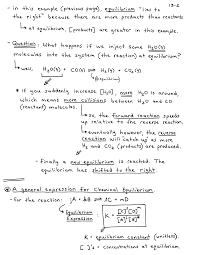 13-2
- in this example (previous page), equilibrium "lies to
the right" because there are more products than reactants
→ at equilibrium, [products] are greater in this example.
- Question: What happens if we inject some H₂O(g)
molecules into the system (the reaction) at equilibrium?
↳ well, H₂O(g) + CO(g) ⇌ H₂(g) + CO₂(g)
(equilibrium)
* if you suddenly increase [H₂O], more H₂O is around,
which means more collisions between H₂O and CO
(reactants).
↳ so, the forward reaction speeds
up relative to the reverse reaction.
↳ eventually however, the reverse
reaction will catch up as more
H₂ and CO₂ (products) are produced.
- Finally a new equilibrium is reached. The
equilibrium has shifted to the right.
A general expression for Chemical Equilibrium.
- For the reaction: jA + kB ⇌ lC + mD
Equilibrium
Expression
K = [C]ˡ[D]ᵐ / [A]ʲ[B]ᵏ
K = equilibrium constant (unitless).
[ ]'s = concentrations at equilibrium.